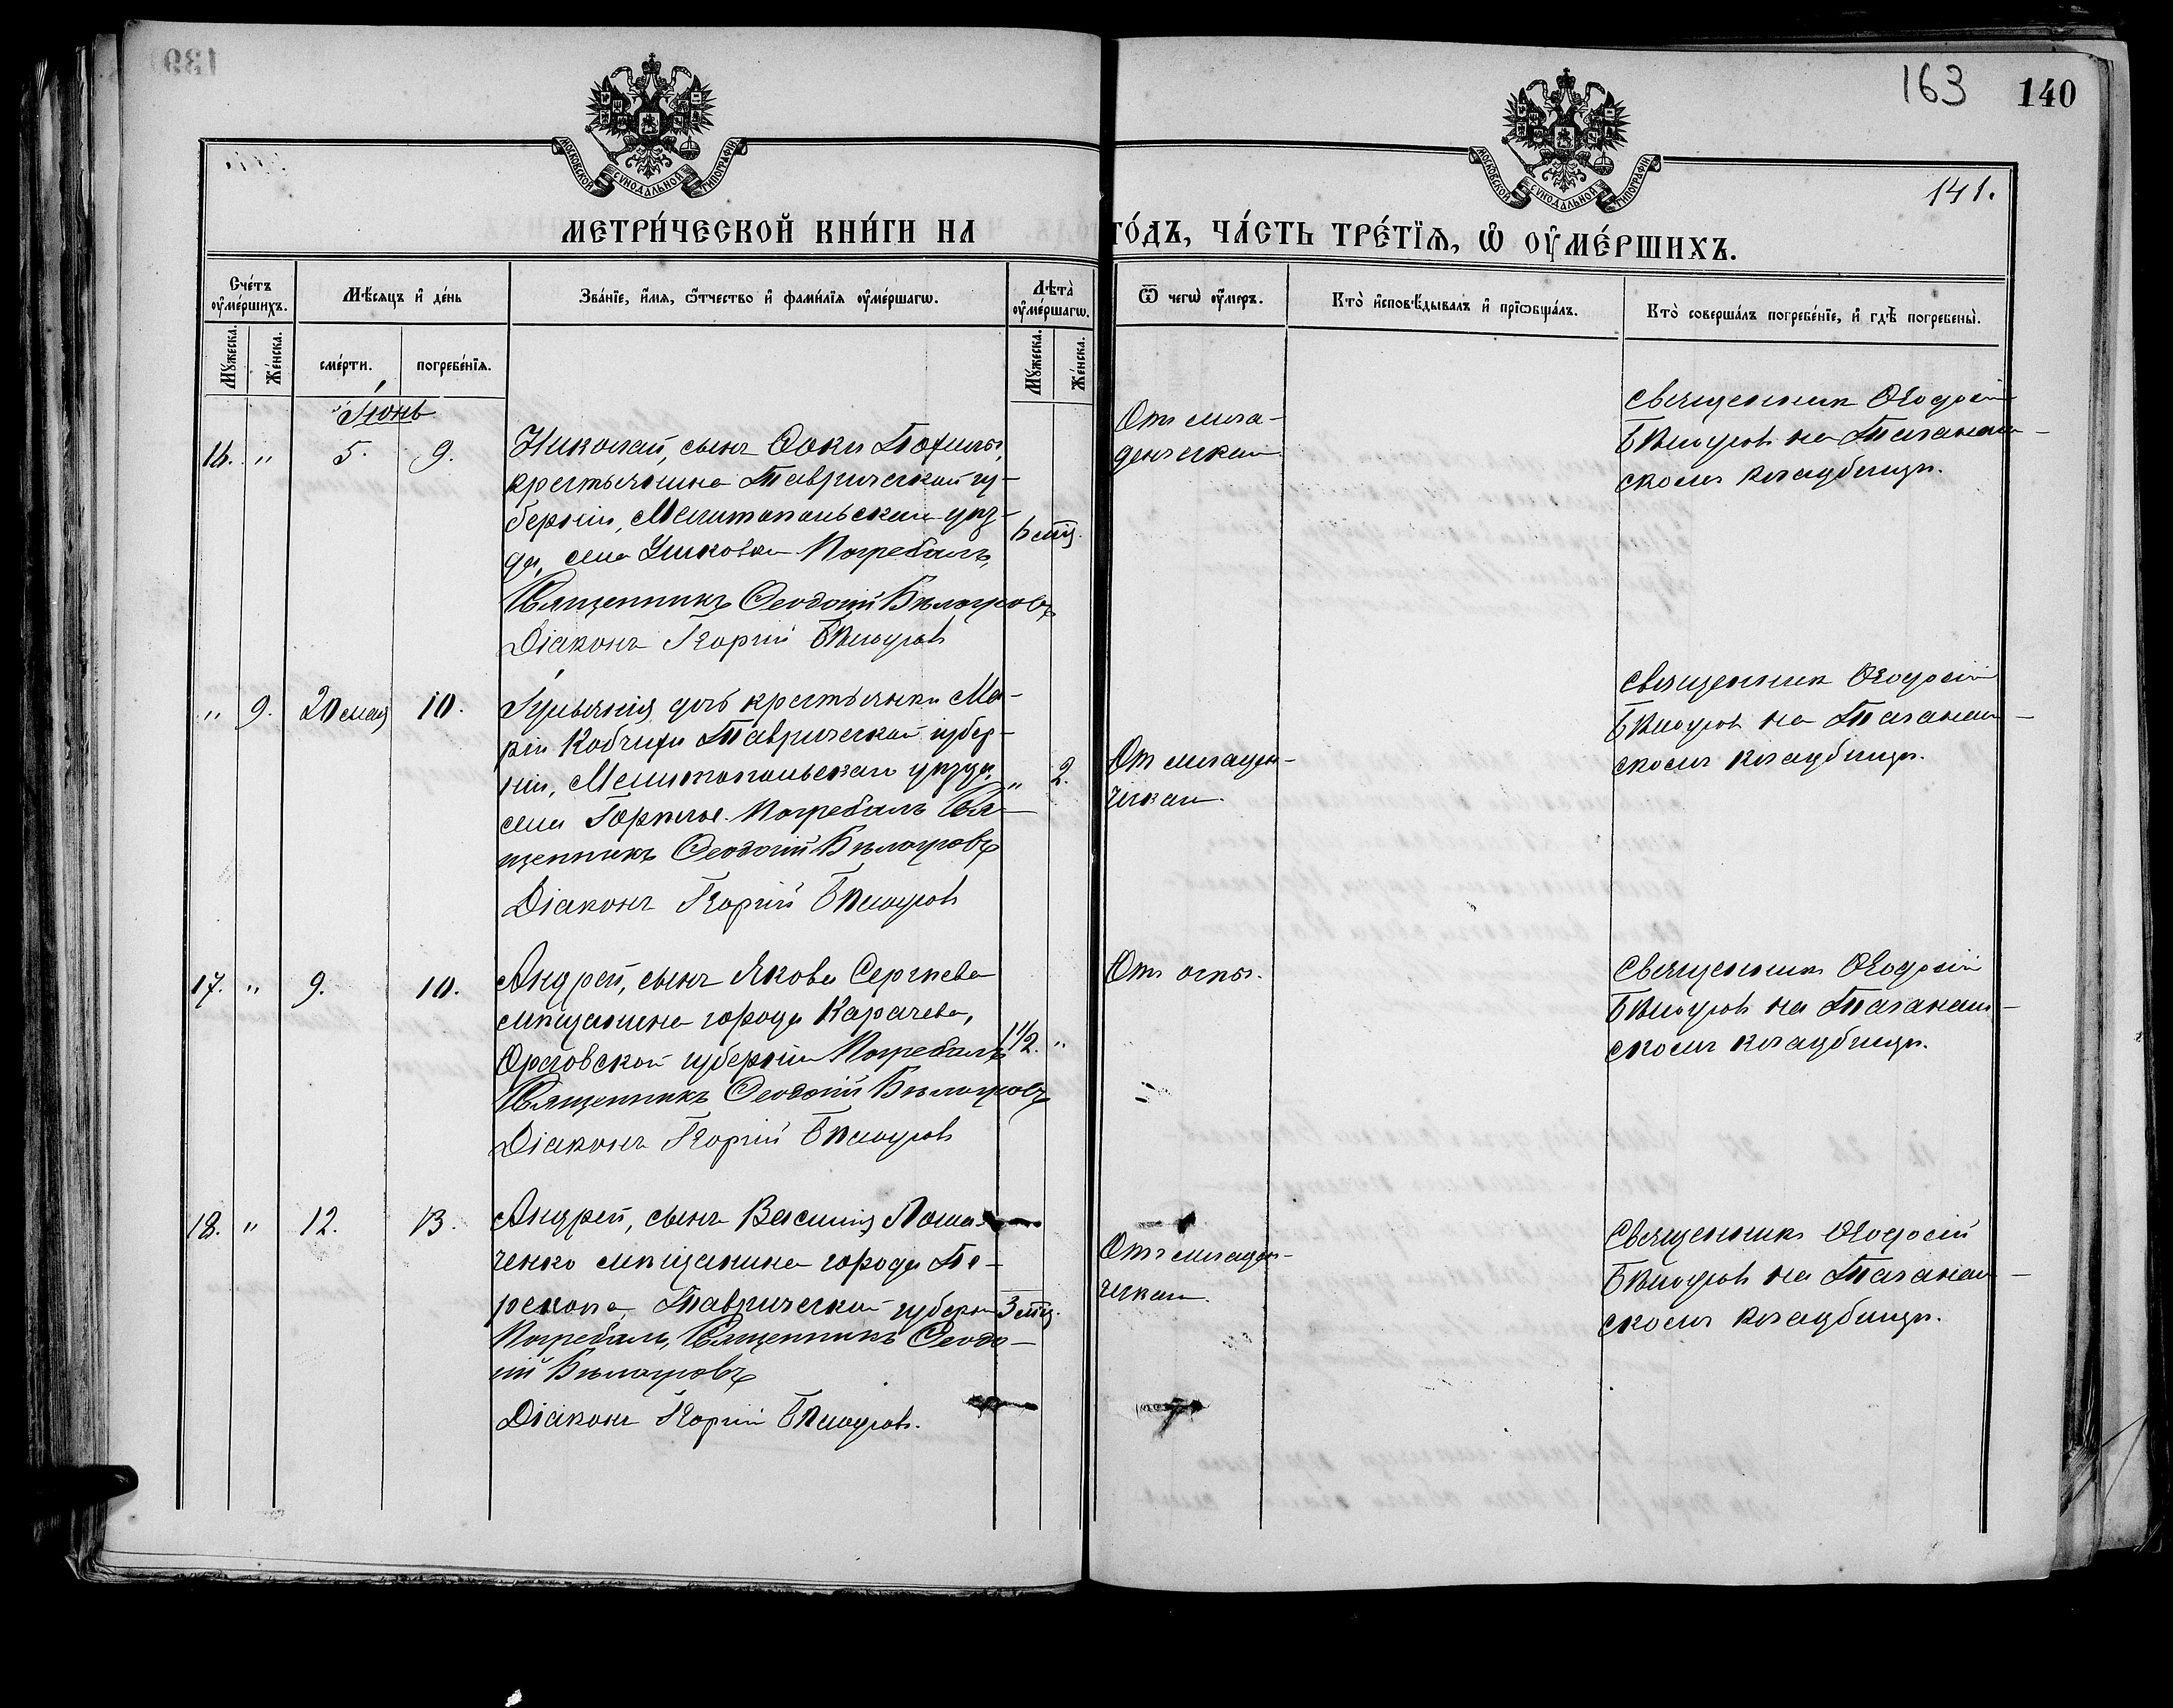 163 140
МОСКОВСКОЙ СѴНОДАЛЬНОЙ ТИПОГРАФІИ
МОСКОВСКОЙ СѴНОДАЛЬНОЙ ТИПОГРАФІИ
141.
МЕТРИ́ЧЕСКОЙ КНИ́ГИ НА
ГО́ДЪ, ЧА́СТЬ ТРЕ́ТЇѦ, Ѡ҆ ОУ҆МЕ́РШИХЪ.
Сче́тъ оу҆ме́ршихъ.
Мѣ́сяцъ и҆ де́нь
Зва́нїе, и҆́мѧ, ѻ҆́тчество и҆ фами́лїѧ оу҆ме́ршагѡ.
Лѣта̀ оу҆ме́ршагѡ.
Ѿ чегѡ̀ оу҆́меръ.
Кто̀ и҆сповѣ́дывалъ и҆ прїѻбща́лъ.
Кто̀ соверша́лъ погребе́нїе, и҆ гдѣ̀ погребены̀.
Мꙋ́жеска.
Же́нска.
сме́рти.
погребе́нїѧ.
Мꙋ́жеска.
Же́нска.
Іюнь
16. " 5. 9.
Николай, сынъ Фоки
крестьянина Таврической гу-
берніи, Мелитопольскаго уѣз-
да, села Погребалъ
Священникъ Феодосій Бѣлоусовъ
Діаконъ Георгій Бѣлоусовъ
6 мѣц.
Отъ мла-
денческой
Священник Ѳеодосій
Бѣлоусовъ на
скомъ кладбищѣ.
" 9. 20 мая 10.
дочь крестьянки Ма-
ріи Таврической губер-
ніи, Мелитопольскаго уѣзда,
села Погребалъ Свя-
щенникъ Феодосій Бѣлоусовъ
Діаконъ Георгій Бѣлоусовъ
" 2.
От младен-
ческой.
Священник Ѳеодосій
Бѣлоусовъ на
скомъ кладбищѣ.
17. " 9. 10.
Андрей, сынъ Якова Сергѣева
мѣщанина города Карачева,
Орловской губерніи Погребалъ
Священникъ Феодосій Бѣлоусовъ
Діаконъ Георгій Бѣлоусовъ
1 1/2. "
Отъ оспы.
Священник Ѳеодосій
Бѣлоусовъ на
скомъ кладбищѣ.
18. " 12. 13.
Андрей, сынъ Василія
ченко мѣщанина города Пе-
рекопа, Таврической губерн
Погребалъ, Священникъ Феодо-
сій Бѣлоусовъ
Діаконъ Георгій Бѣлоусовъ.
3 мѣц.
Отъ младен-
ческой.
Священникъ Ѳеодосій
Бѣлоусовъ на
скомъ кладбищѣ.